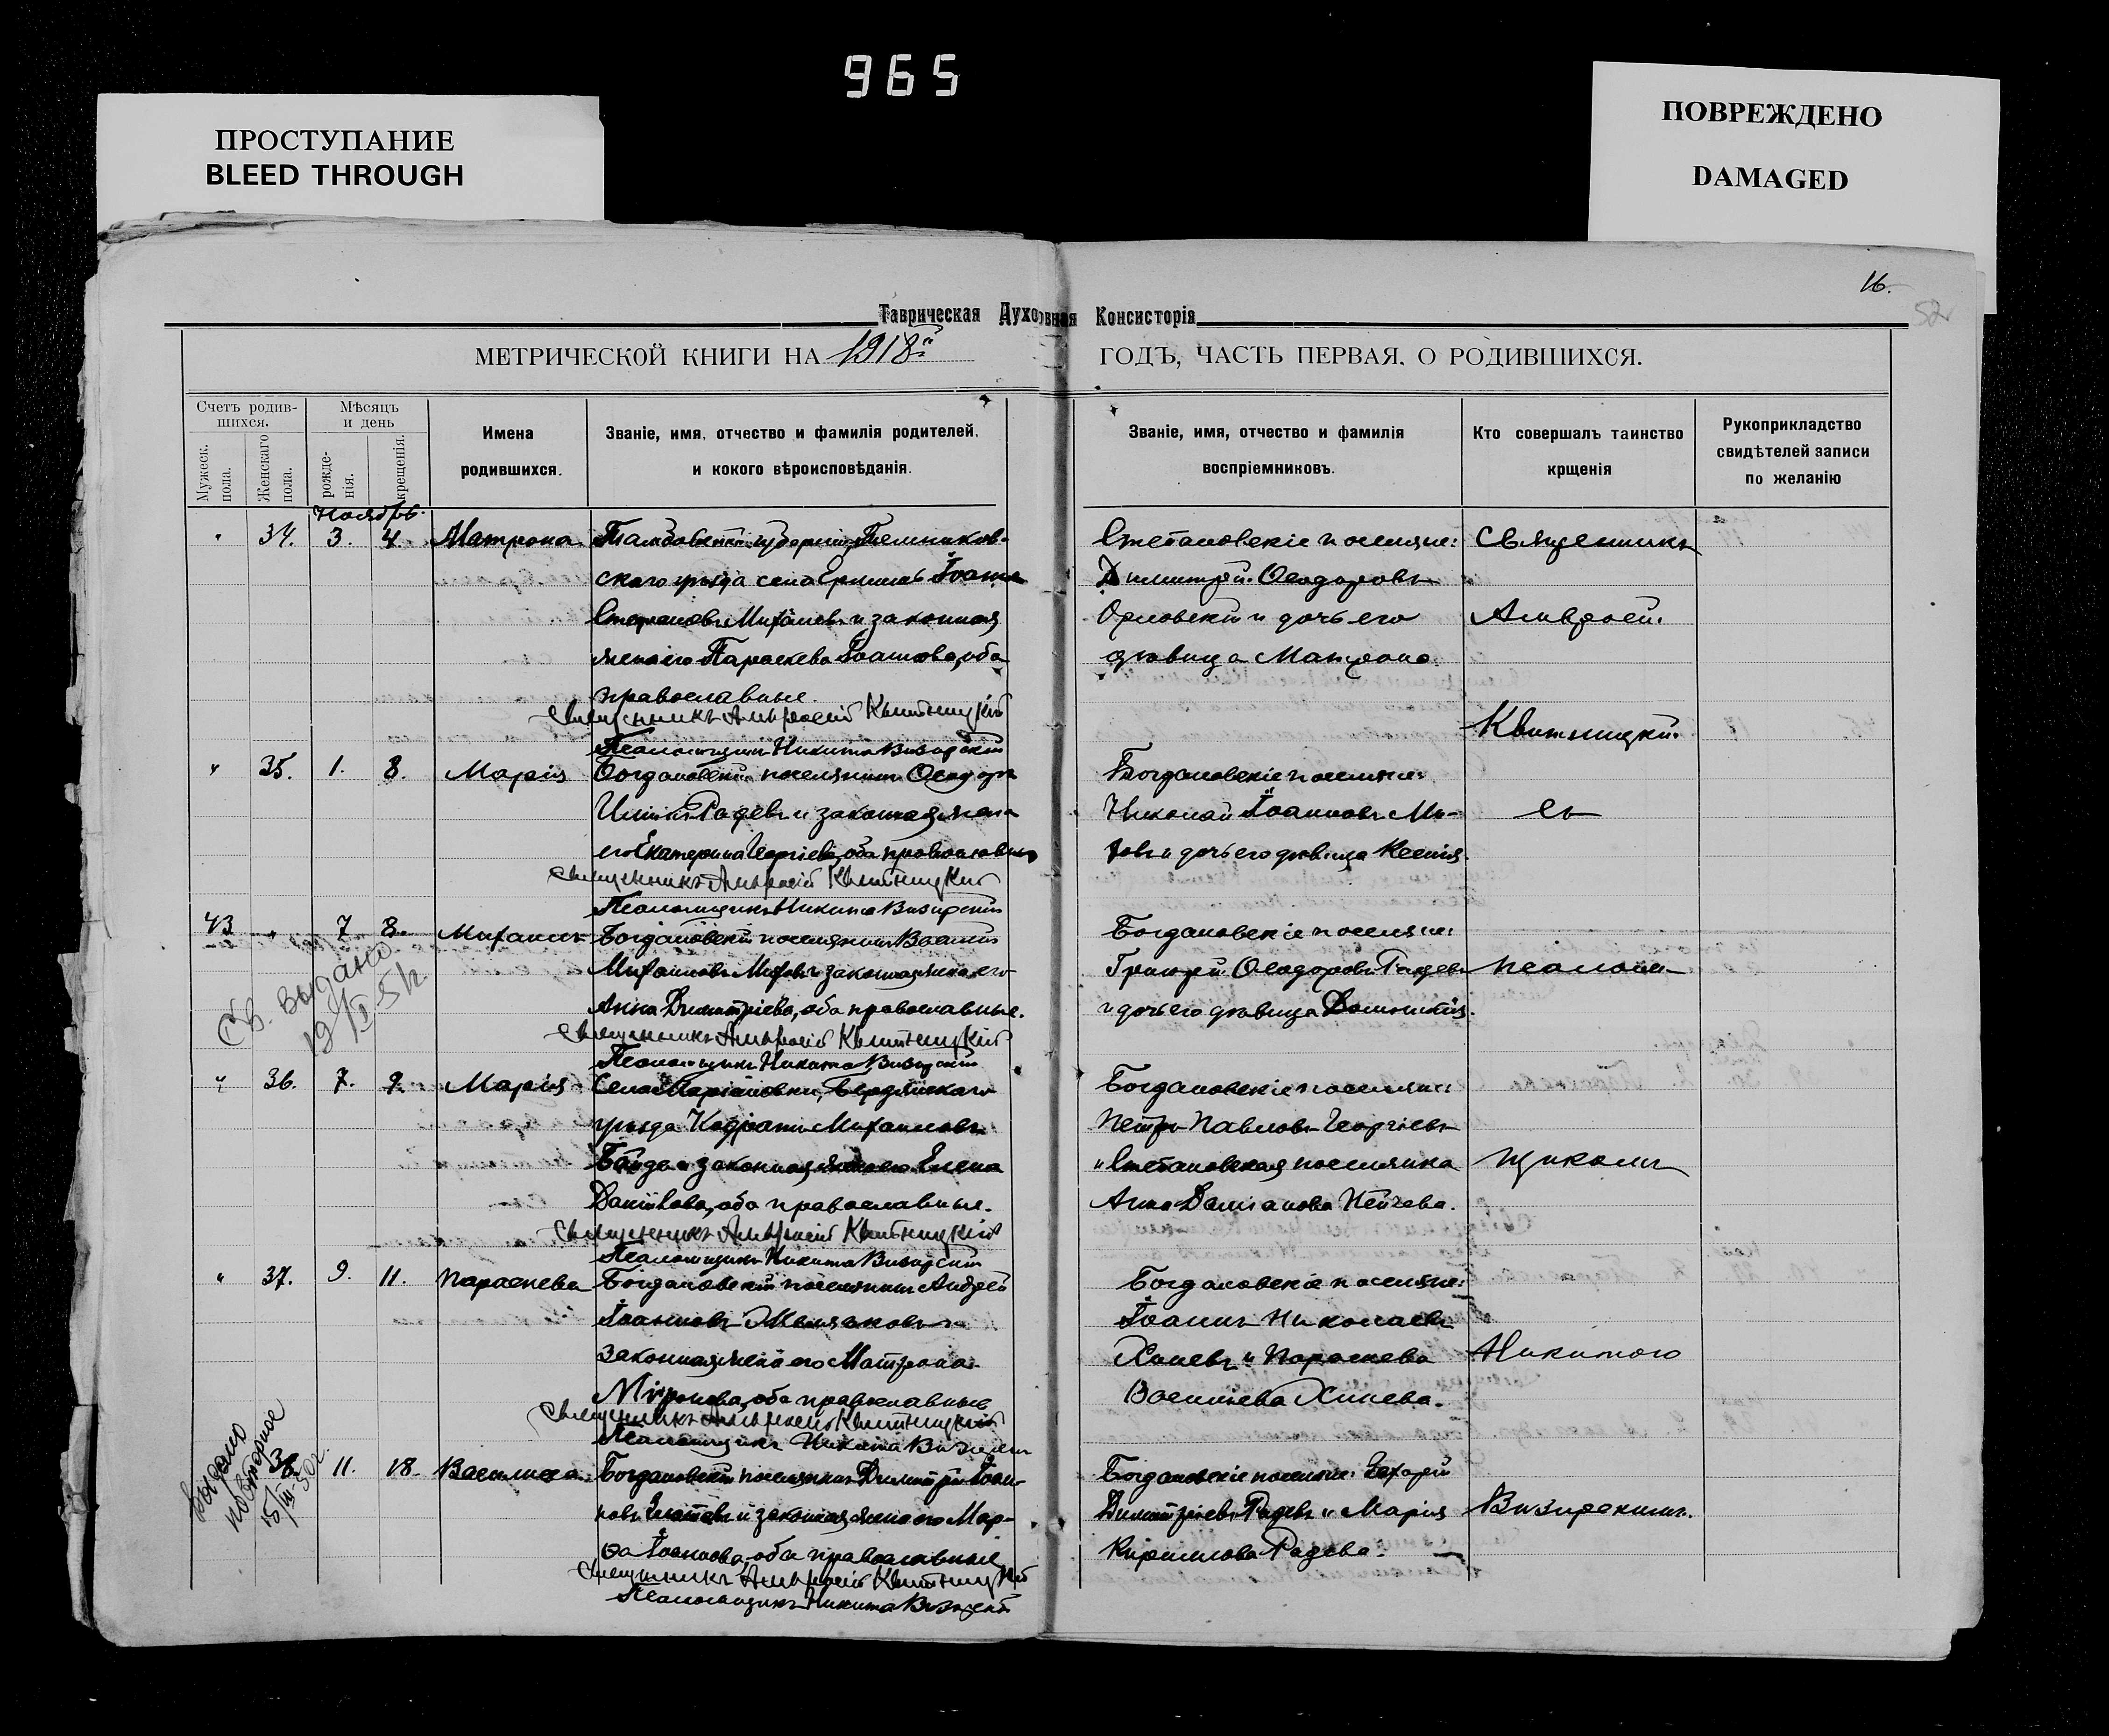 965
ПРОСТУПАНИЕ
BLEED THROUGH
ПОВРЕЖДЕНО
DAMAGED
16.
52
Таврическая Духовная Консисторія
МЕТРИЧЕСКОЙ КНИГИ НА 1918й ГОДЪ, ЧАСТЬ ПЕРВАЯ, О РОДИВШИХСЯ.
Счетъ родив-
шихся.
Мужеск. пола.
Женскаго пола.
Мѣсяцъ
и день
рожде-
нія.
крещенія.
Имена
родившихся.
Званіе, имя, отчество и фамилія родителей,
и кокого вѣроисповѣданія.
Званіе, имя, отчество и фамилія
воспріемниковъ.
Кто совершалъ таинство
крщенія
Рукоприкладство
свидѣтелей записи
по желанію
Ноябрь.
" 34. 3. 4. Матрона Тамбовской губерніи, Темников-
скаго уѣзда села Іоаннъ
Стефановъ и законная
жена его Параскева Іоаннова, оба
православные.
Священникъ Амвросій Квитницкій
Псаломщикъ Никита Визирскій
Димитрій Ѳеодоровъ
Орловскій и дочь его
дѣвица Матрона.
" 35. 1. 8. Марія Богдановскій поселянинъ Ѳеодоръ
Радевъ и законная жена
его Екатерина Георгіева, оба православные
Священникъ Амвросій Квитницкій
Псаломщикъ Никита Визирскій
Богдановскіе поселяне:
Николай Іоанновъ Ми-
ховъ и дочь его дѣвица Ксенія.
43 " 7 8. Михаилъ Богдановскій поселянинъ Василій
Михаиловъ Миховъ и законная жена его
Анна Димитріева, оба православные.
Священникъ Амвросій Квитницкій
Псаломщикъ Никита Визирскій
Богдановскіе поселяне:
Григорій Ѳеодоровъ Радевъ
и дочь его дѣвица Домникія.
Св. выдано
" 36. 7. 9. Марія Села Маріановки, Бердянскаго
уѣзда Кодратъ Михаиловъ
и законная жена его Елена
оба православные.
Священникъ Амвросій Квитницкій
Псаломщикъ Никита Визирскій
Богдановскіе поселяне:
Петръ Павловъ Георгіевъ
и Степановская поселянка
Анна Даміанова Пейчева.
" 37. 9. 11. Параскева Богдановскій поселянинъ Андрей
Іоанновъ Желязковъ и
законная жена его Матрона
Миронова, оба православные
Священникъ Амвросій Квитницкій
Псаломщикъ Никита Визирскій
Богдановскіе поселяне:
Іоаннъ Николаевъ
и Параскева
Васильева
Выдано
повторное
38 11. 18. Василиса Богдановскій поселянинъ Димитрій Іоан-
новъ и законная жена его Мар-
ѳа Іоаннова, оба православные
Священникъ Амвросій Квитницкій
Псаломщикъ Никита Визирскій
Богдановскіе поселяне: Захарій
Димитріевъ Радевъ и Марія
Кириллова Радева.
Священникъ
Амвросій
Квитницкій
съ
псалом-
щикомъ
Никитою
Визирскимъ.